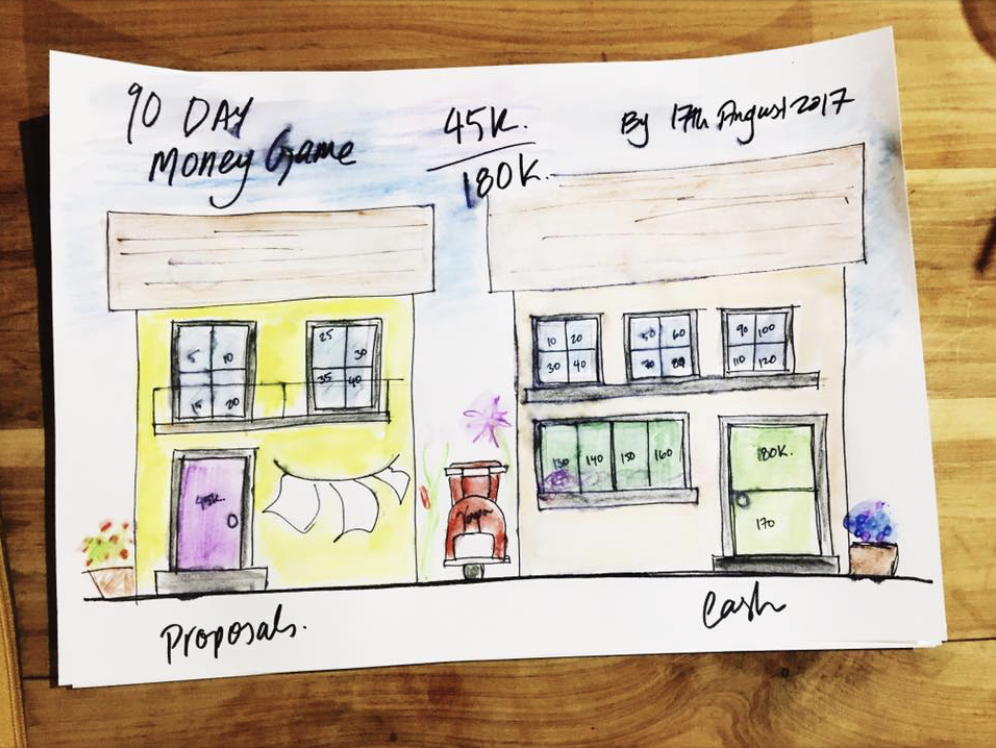 90 DAY
Money Game
45K.
180K.
By 17th August 2017
5 10
15 20
25
30
35 40
10 20
30 40
50 60
70 80
90 100
110 120
45K.
130 140 150 160
180K.
170
Proposals.
Cash